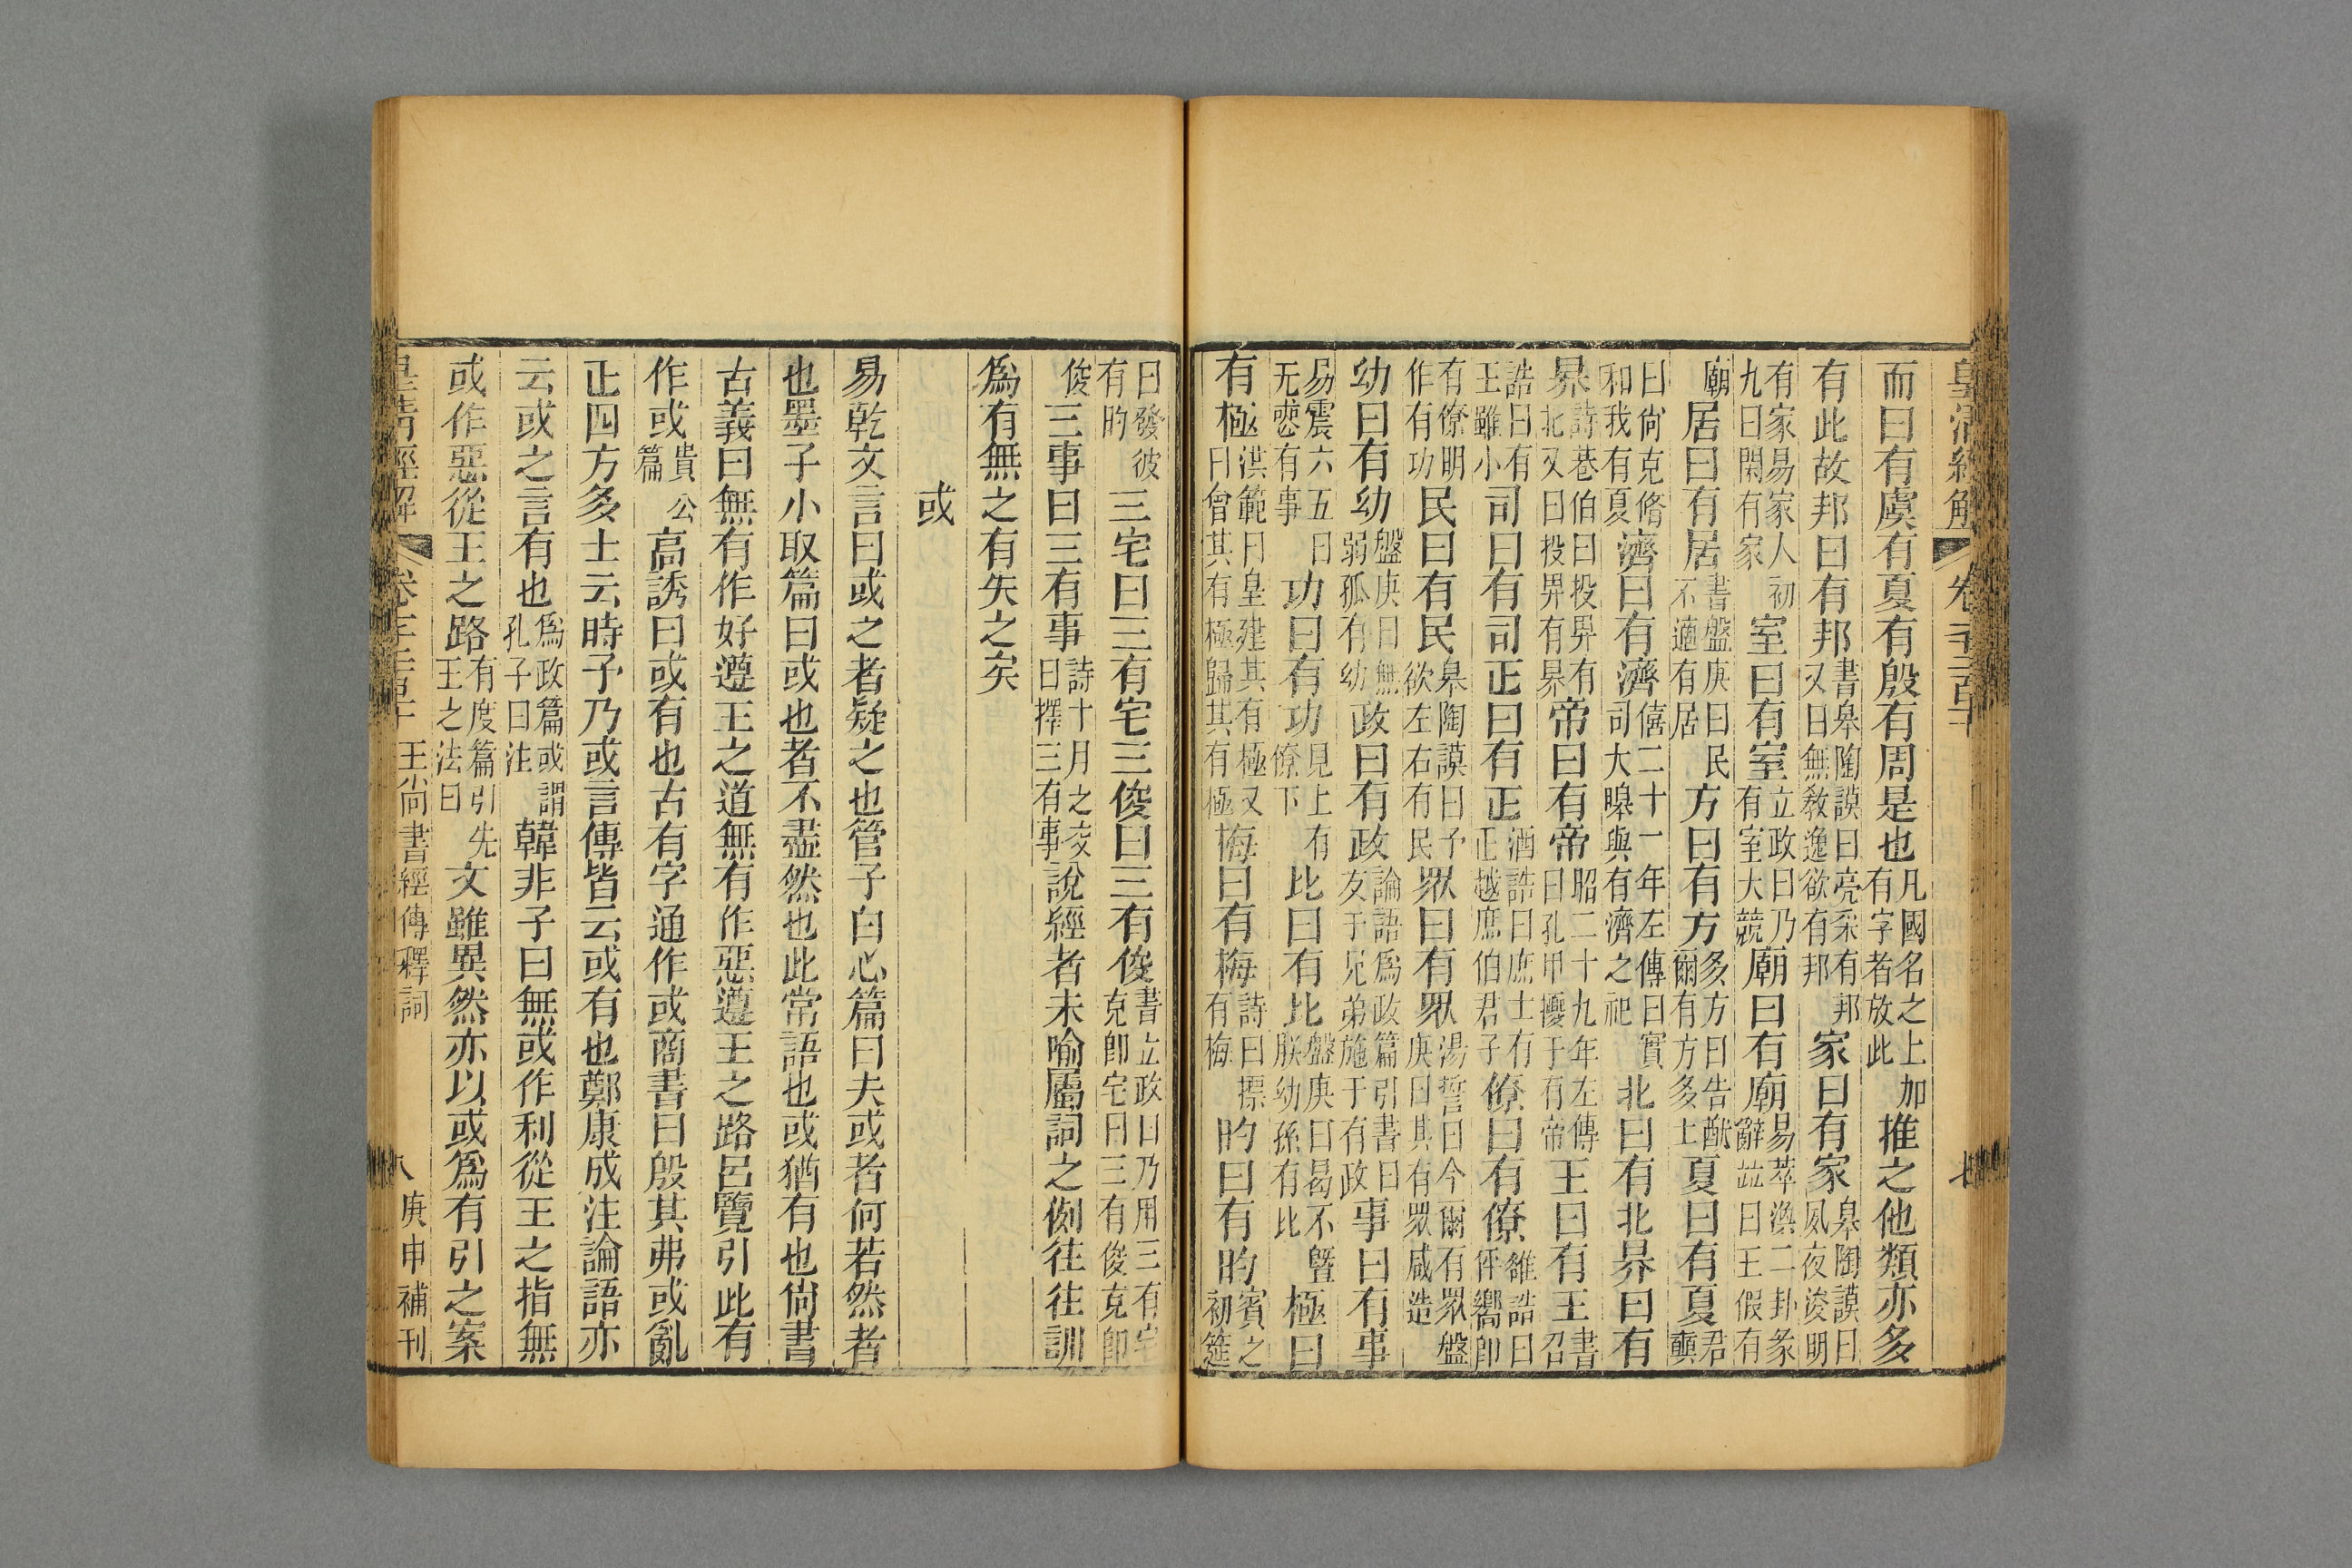 皇清經解 卷千二百十 七
而曰有虞有夏有殷有周是也凡國名之上加有字者放此推之他類亦多
有此故邦曰有邦書皋陶謨曰亮采有邦又曰無敎逸欲有邦家曰有家皋陶謨曰夙夜浚明
有家易家人初九曰閑有家室曰有室立政曰乃有室大競廟曰有廟易萃渙二卦彖辭竝曰王假有
廟居曰有居書盤庚曰民不適有居方曰有方多方曰告猷爾有方多士夏曰有夏君奭
曰尙克脩和我有夏濟曰有濟僖二十一年左傳曰實司大皥與有濟之祀北曰有北昦曰有
昦詩巷伯曰投畀有北又曰投畀有昦帝曰有帝昭二十九年左傳曰孔甲擾于有帝王曰有王書召
誥曰有王雖小司曰有司正曰有正酒誥曰庶士有正越庶伯君子僚曰有僚雒誥曰伻嚮卽
有僚明作有功民曰有民皋陶謨曰予欲左右有民眾曰有眾湯誓曰今爾有眾盤庚曰其有眾咸造
幼曰有幼盤庚曰無弱孤有幼政曰有政論語爲政篇引書曰友于兄弟施于有政事曰有事
易震六五曰无喪有事功曰有功見上有僚下比曰有比盤庚曰曷不曁朕幼孫有比極曰
有極洪範曰皇建其有極又曰會其有極歸其有極梅曰有梅詩曰摽有梅旳曰有旳賓之初筵
曰發彼有旳三宅曰三有宅三俊曰三有俊書立政曰乃用三有宅克卽宅曰三有俊克卽
俊三事曰三有事詩十月之交曰擇三有事說經者未喻屬詞之例往往訓
爲有無之有失之矣
或
易乾文言曰或之者疑之也管子白心篇曰夫或者何若然者
也墨子小取篇曰或也者不盡然也此常語也或猶有也尙書
古義曰無有作好遵王之道無有作惡遵王之路呂覽引此有
作或貴公篇高誘曰或有也古有字通作或商書曰殷其弗或亂
正四方多士云時予乃或言傳皆云或有也鄭康成注論語亦
云或之言有也爲政篇或謂孔子曰注韓非子曰無或作利從王之指無
或作惡從王之路有度篇引先王之法曰文雖異然亦以或爲有引之案
皇清經解 卷千二百十 王尙書經傳釋詞 八 庚申補刊